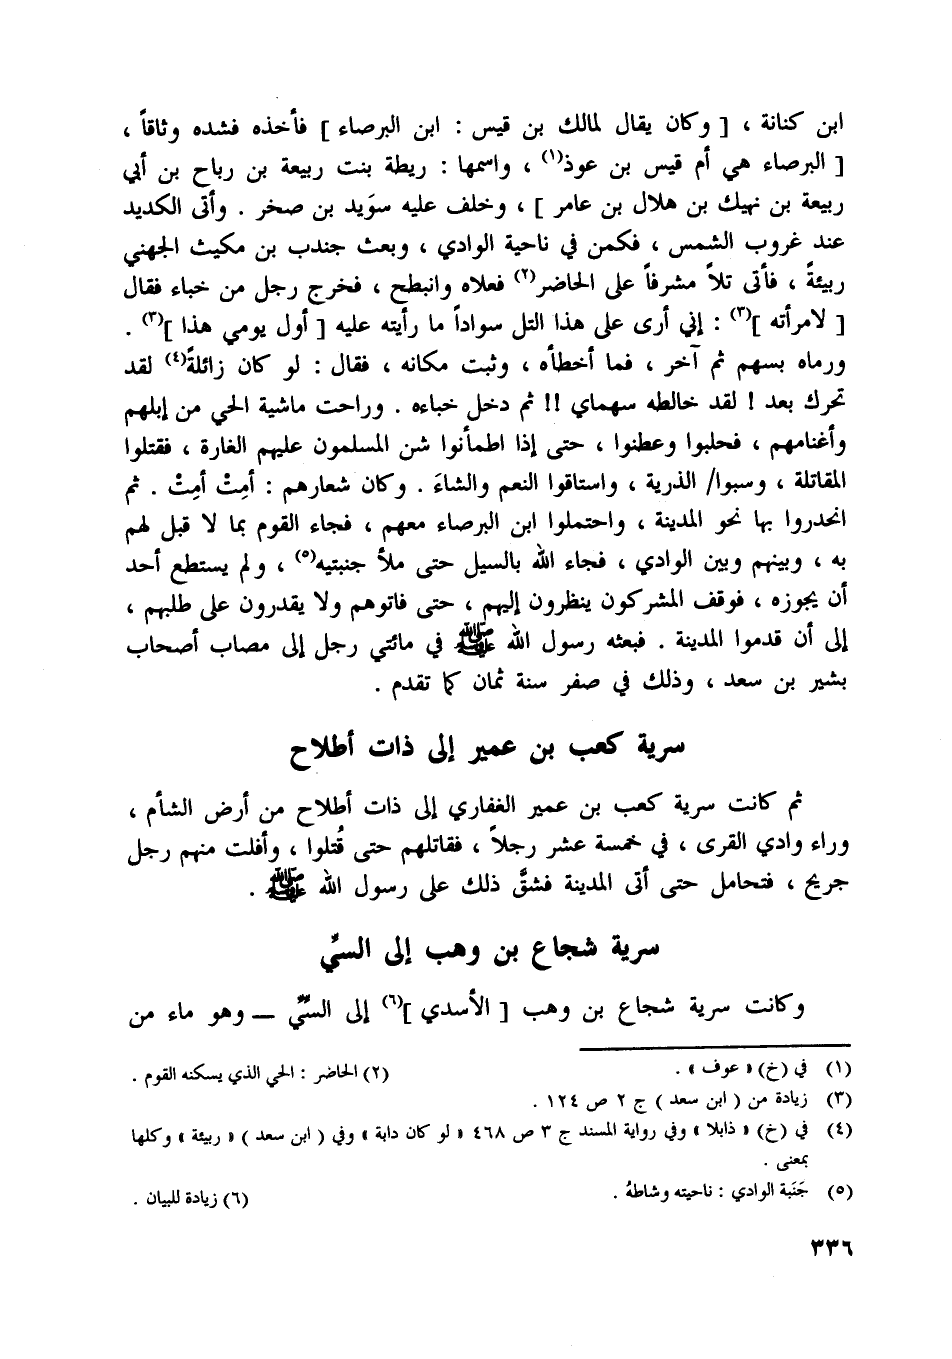 ابن كنانة ، [ وكان يقال لمالك بن قيس : ابن البرصاء ] فأخذه فشده وثاقاً ،
[ البرصاء هي أم قيس بن عوذ(١) ، واسمها : ريطة بنت ربيعة بن رباح بن أبي
ربيعة بن نهيك بن هلال بن عامر ] ، وخلف عليه سوَيد بن صخر . وأتى الكديد
عند غروب الشمس ، فكمن في ناحية الوادي ، وبعث جندب بن مكيث الجهني
ربيئةً ، فأتى تلاً مشرفاً على الحاضر(٢) فعلاه وانبطح ، فخرج رجل من خباء فقال
[ لامرأته ](٣) : إني أرى على هذا التل سواداً ما رأيته عليه [ أول يومي هذا ](٣) .
ورماه بسهم ثم آخر ، فما أخطأه ، وثبت مكانه ، فقال : لو كان زائلةً(٤) لقد
تحرك بعد ! لقد خالطه سهماي !! ثم دخل خباءه . وراحت ماشية الحي من إبلهم
وأغنامهم ، فحلبوا وعطنوا ، حتى إذا اطمأنوا شن المسلمون عليهم الغارة ، فقتلوا
المقاتلة ، وسبوا/ الذرية ، واستاقوا النعم والشاءَ . وكان شعارهم : أمِتْ أمِتْ . ثم
انحدروا بها نحو المدينة ، واحتملوا ابن البرصاء معهم ، فجاء القوم بما لا قبل لهم
به ، وبينهم وبين الوادي ، فجاء الله بالسيل حتى ملأ جنبتيه(٥) ، ولم يستطع أحد
أن يجوزه ، فوقف المشركون ينظرون إليهم ، حتى فاتوهم ولا يقدرون على طلبهم ،
إلى أن قدموا المدينة . فبعثه رسول الله ﷺ في مائتي رجل إلى مصاب أصحاب
بشير بن سعد ، وذلك في صفر سنة ثمان كما تقدم .
سرية كعب بن عمير إلى ذات أطلاح
ثم كانت سرية كعب بن عمير الغفاري إلى ذات أطلاح من أرض الشأم ،
وراء وادي القرى ، في خمسة عشر رجلاً ، فقاتلهم حتى قُتلوا ، وأفلت منهم رجل
جريح ، فتحامل حتى أتى المدينة فشقَّ ذلك على رسول الله ﷺ .
سرية شجاع بن وهب إلى السيِّ
وكانت سرية شجاع بن وهب [ الأسدي ](٦) إلى السِّيِّ ــ وهو ماء من
(١) في (خ) « عوف » .
(٢) الحاضر : الحي الذي يسكنه القوم .
(٣) زيادة من ( ابن سعد ) ج ٢ ص ١٢٤ .
(٤) في (خ) « ذابلا » وفي رواية المسند ج ٣ ص ٤٦٨ « لو كان دابة » وفي ( ابن سعد ) « ربيئة » وكلها
بمعنى .
(٥) جَنَبة الوادي : ناحيته وشاطئُه .
(٦) زيادة للبيان .
٣٣٦